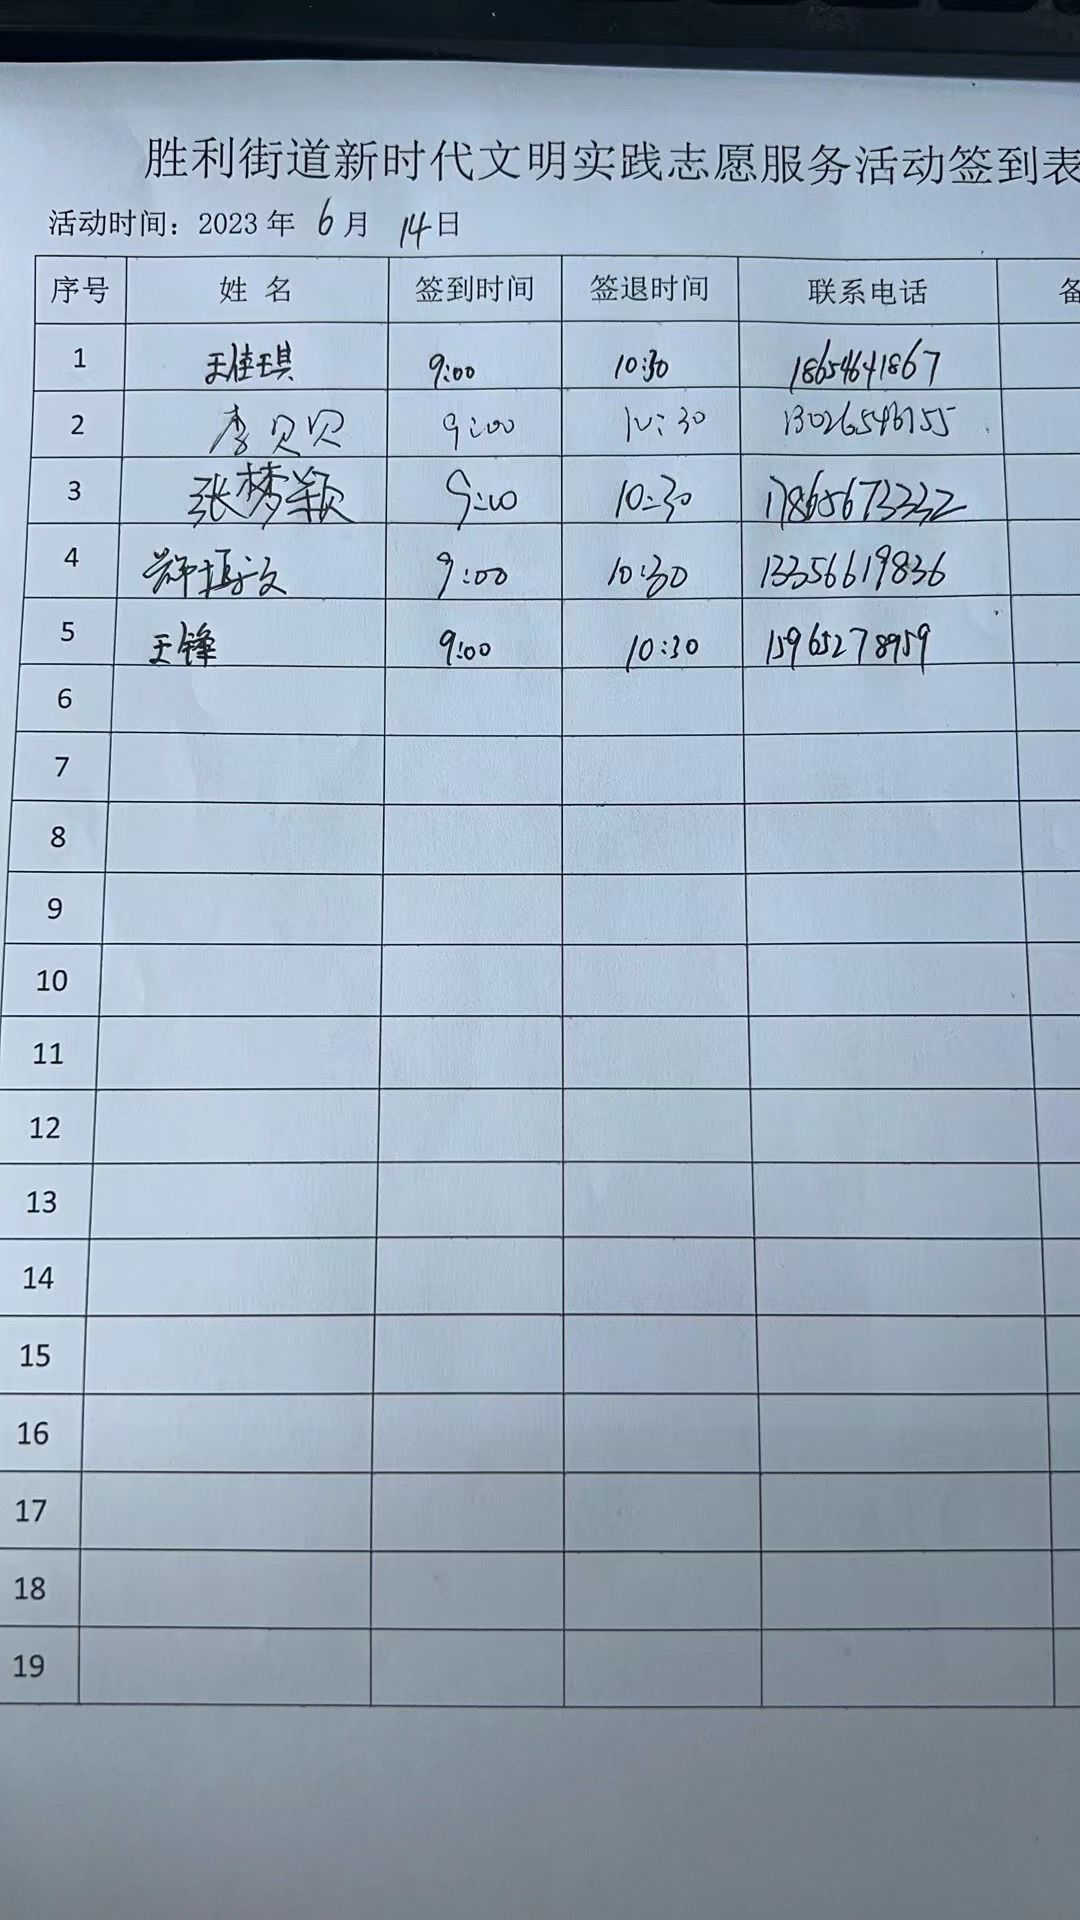 胜利街道新时代文明实践志愿服务活动签到表
活动时间：2023年 6月 14日
序号 姓 名 签到时间 签退时间 联系电话 备
1 王佳琪 9:00 10:30 18654641867
2 李贝贝 9:00 10:30 13026546755
3 张梦颖 9:00 10:30 17865673332
4 9:00 10:30 13356619836
5 王锋 9:00 10:30 15965278959
6
7
8
9
10
11
12
13
14
15
16
17
18
19